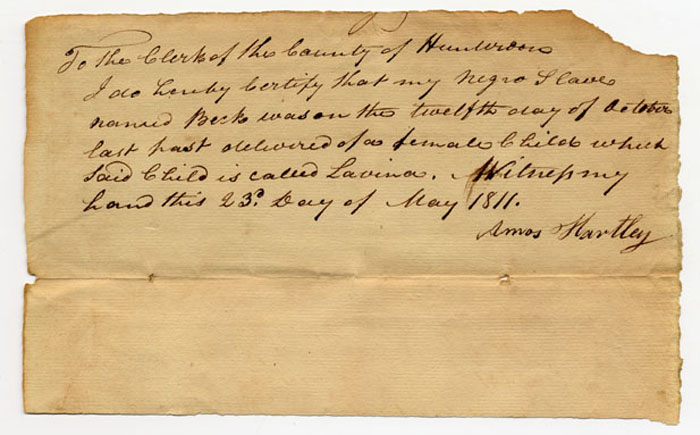 To the Clerk of the County of Hunterdon
I do hereby Certify that my Negro Slave
named Beck was on the twelfth day of October
last past delivered of a female Child which
Said Child is called Lavina. Witness my
hand this 23d. Day of May 1811.
Amos Hartley